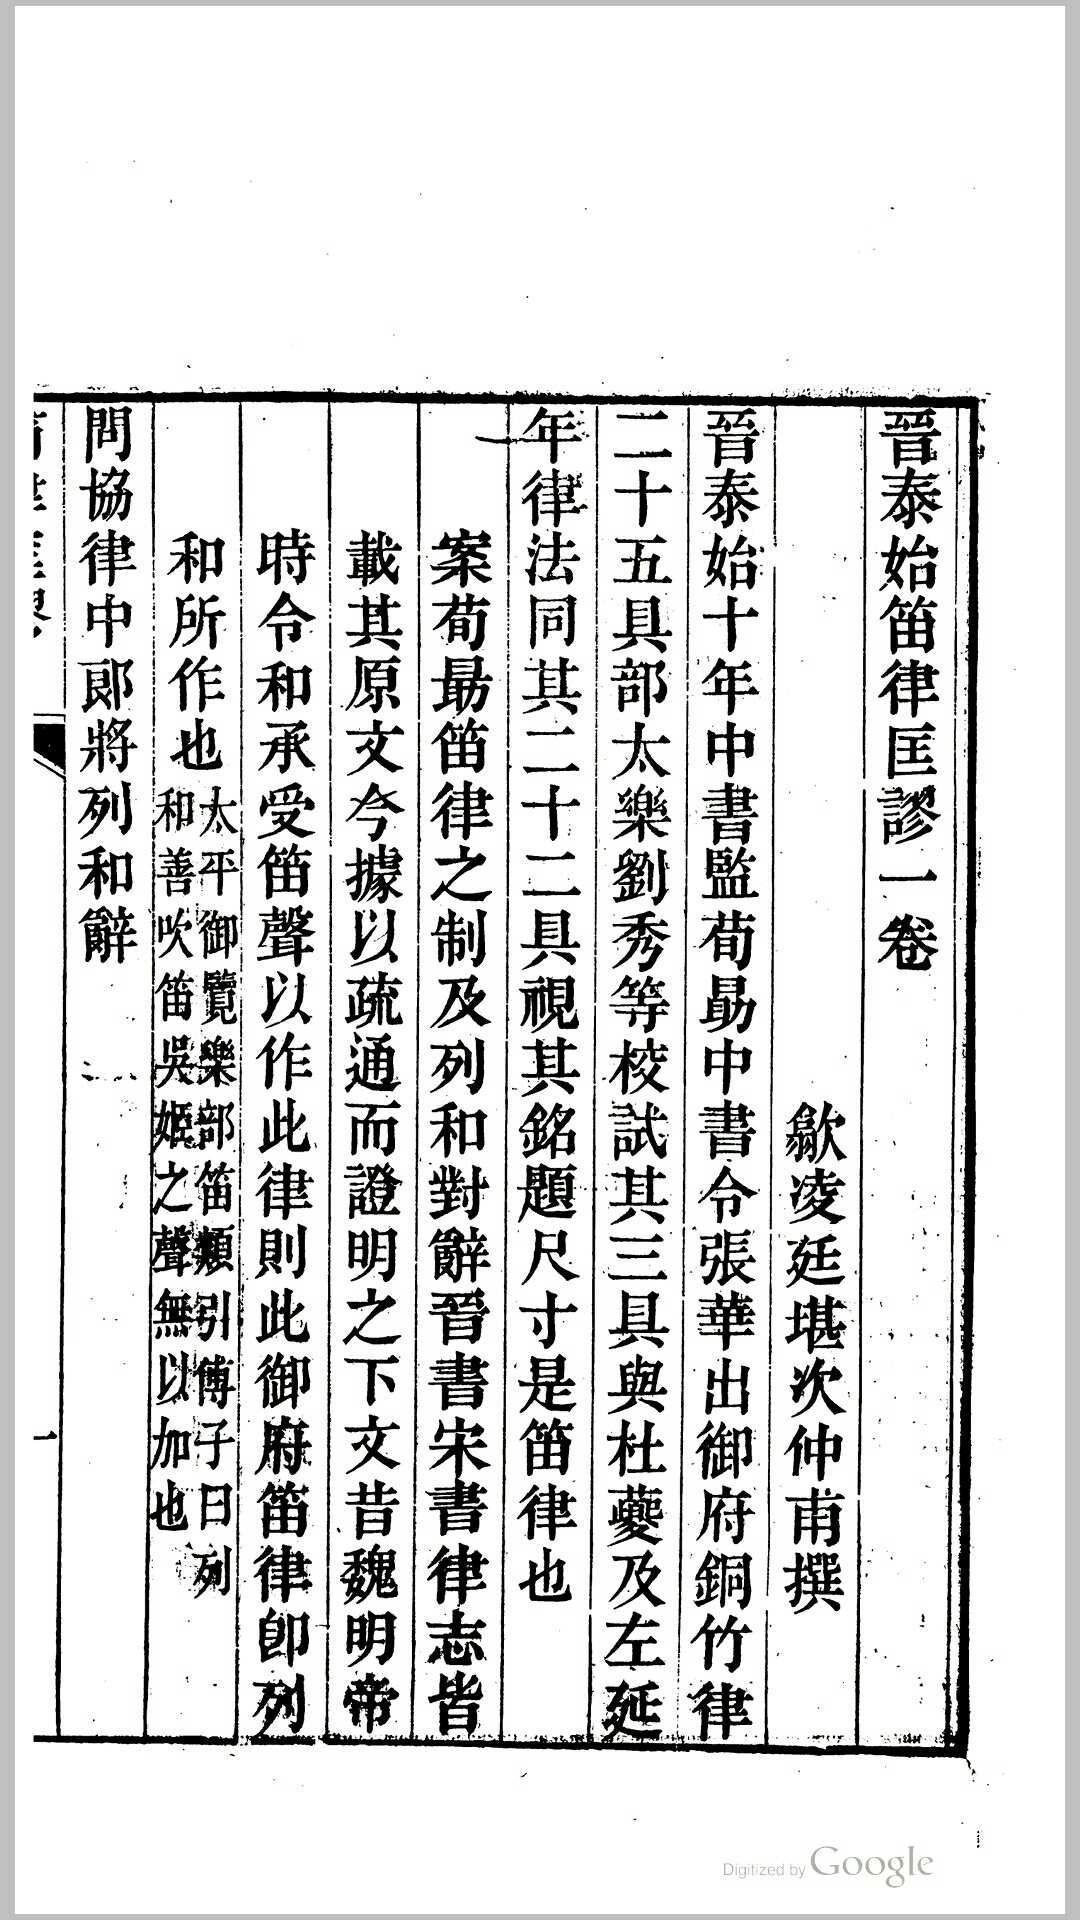 晉泰始笛律匡謬一卷
歙凌廷堪次仲甫撰
晉泰始十年中書監荀勗中書令張華出御府銅竹律
二十五具部太樂劉秀等校試其三具與杜夔及左延
年律法同其二十二具視其銘題尺寸是笛律也
案荀勗笛律之制及列和對辭晉書宋書律志皆
載其原文今據以疏通而證明之下文昔魏明帝
時令和承受笛聲以作此律則此御府笛律卽列
和所作也太平御覽樂部笛類引傅子曰列
和善吹笛吳姬之聲無以加也
問協律中郎將列和辭
一
Digitized by Google